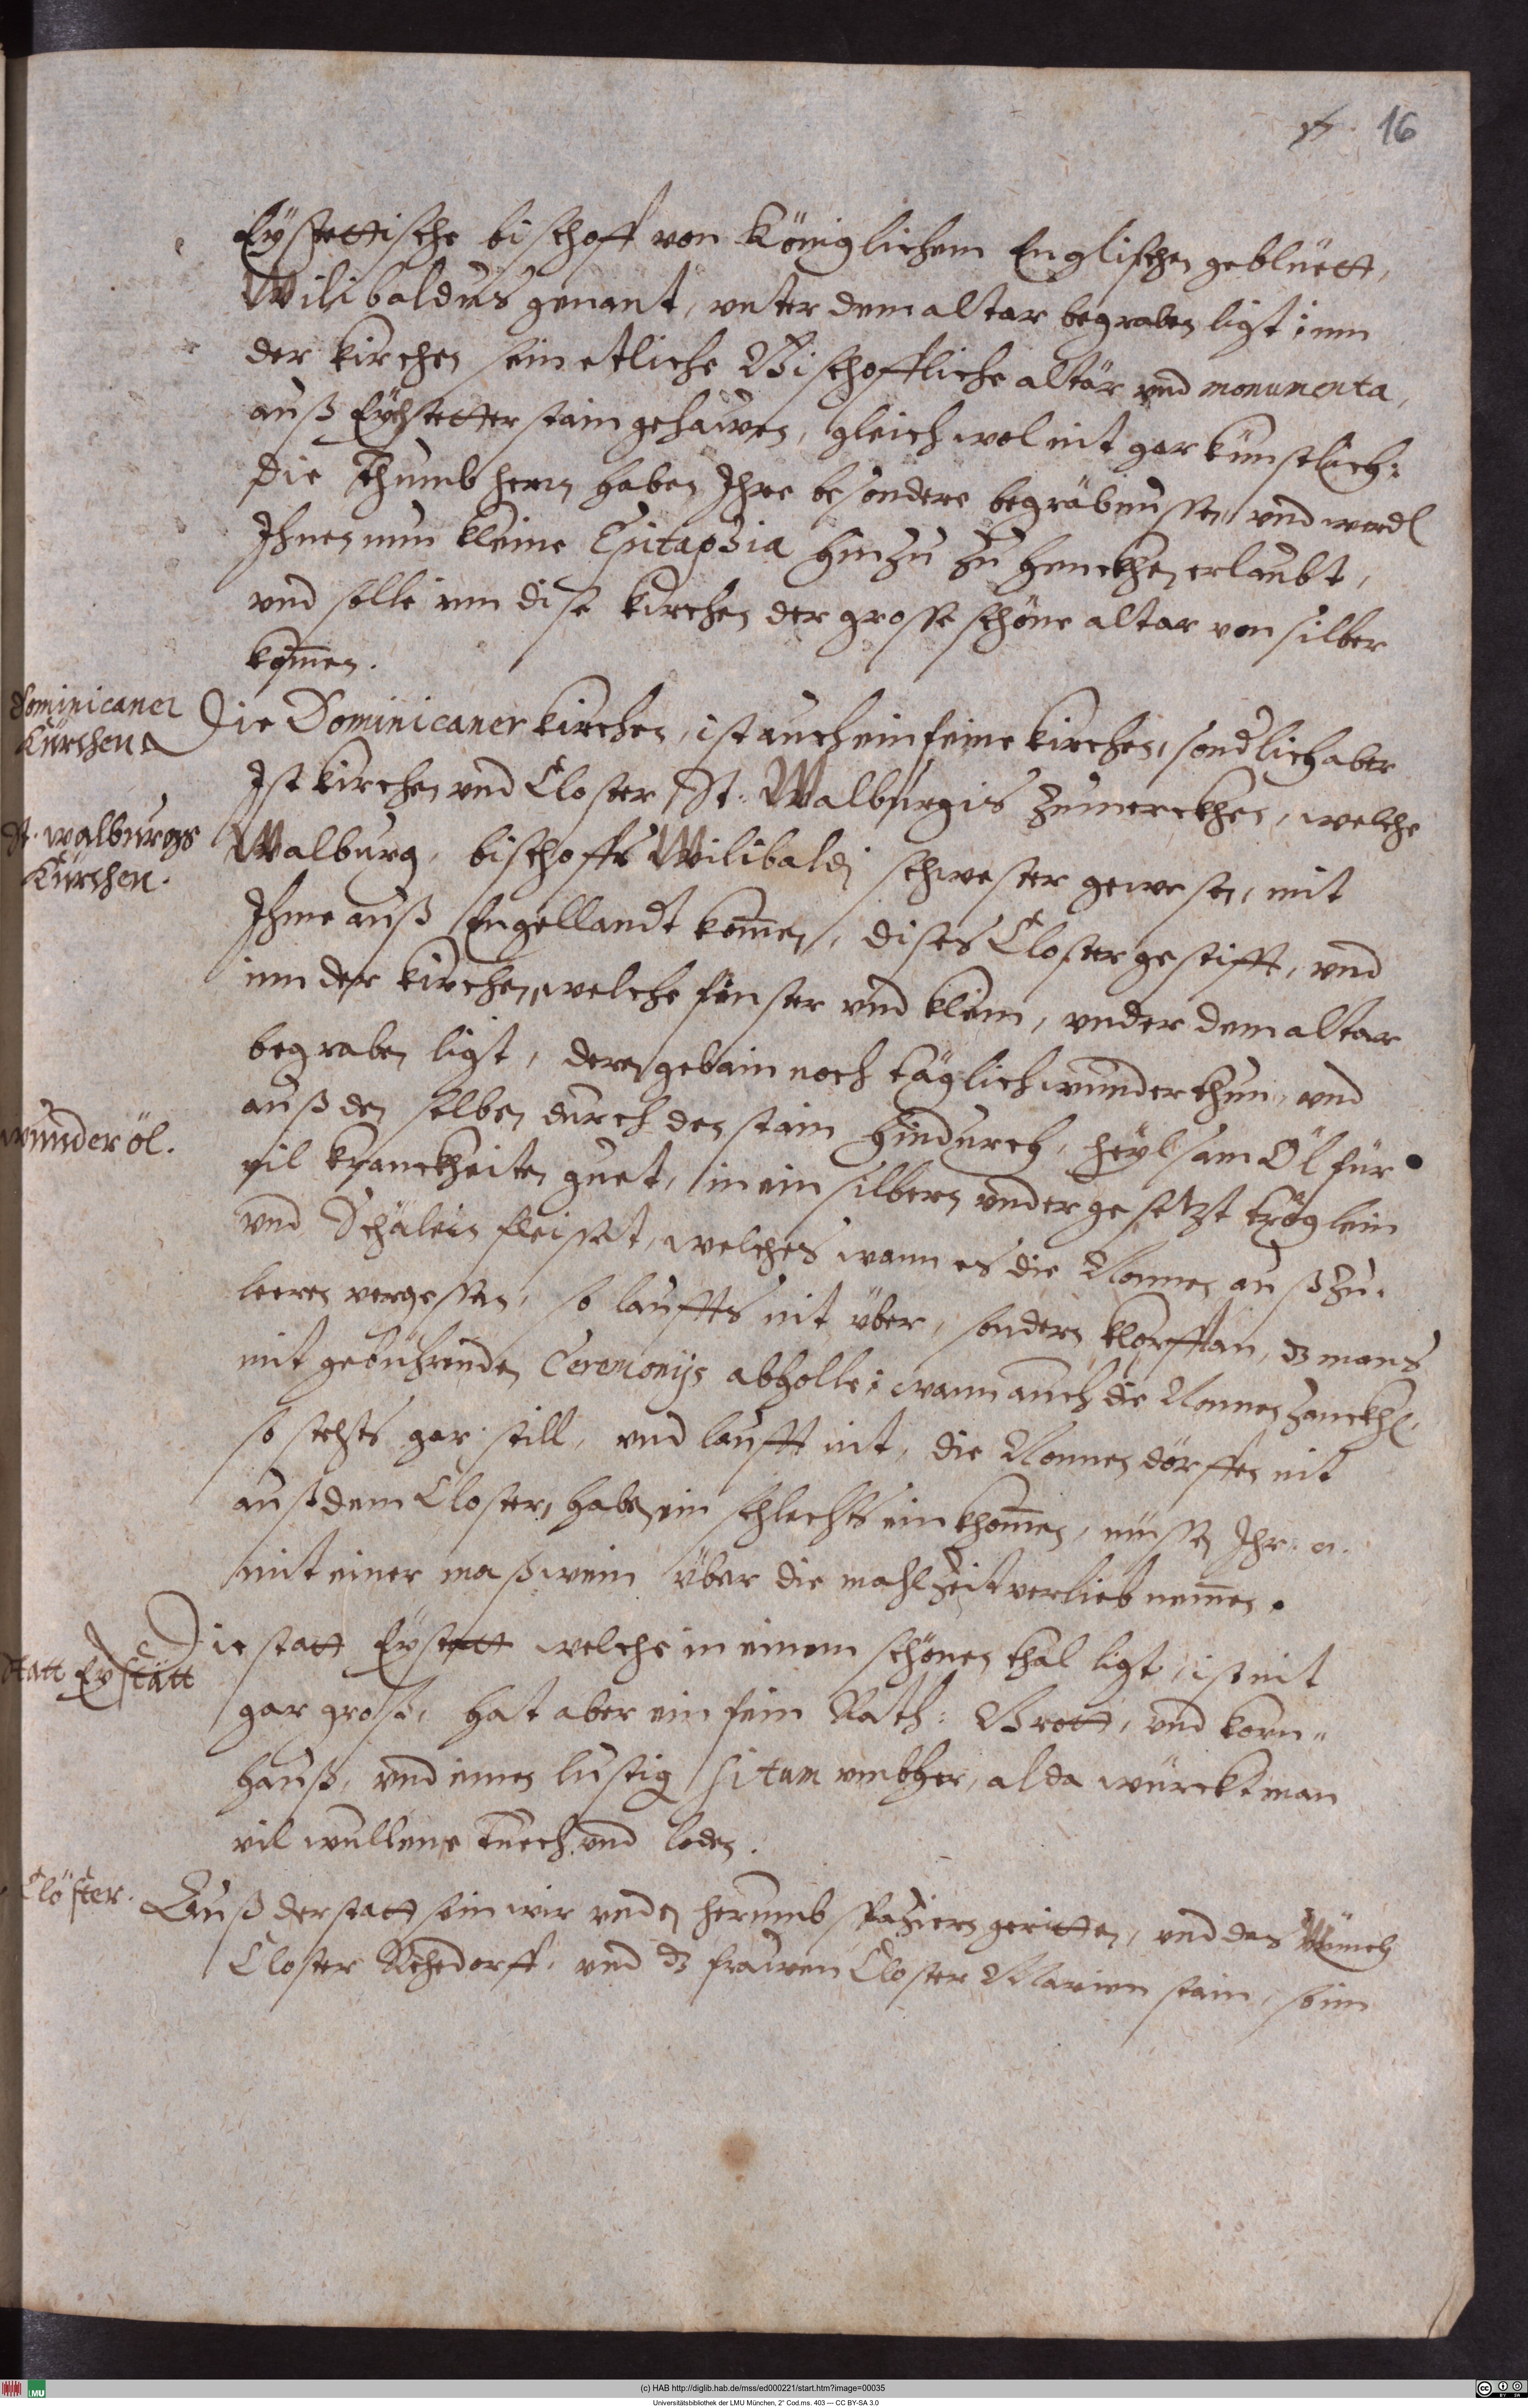 16
Eystettische bischoff von Königlichem Englischen geblüett,
Wilibaldus genant, unter dem altar begraben ligt: inn
der kirchen sein etliche Bischoffliche altär und monumenta,
auß Eychstetter stain gehawen, gleichwol nit gar künstlich:
die Thumbherrn haben Ihre besondere begräbnussen, und werdn
Ihnen nun kleine Epitaphia hinzu zu henckhen erlaubt,
und solle inn dise kirchen der grosse schöne altar von silber
kommen.
Dominicaner
Kürchen
Die Dominicaner kirchen, ist auch ein feine kirchen, sondlich aber
Ist kirchen und Closter St. Walburgis zumerckhen, welche
St. Walburgs
Kürchen.
Walburg, bischoffs Wilibaldj schwester gewesen, mit
Ihme auß Engellandt kommen, dises Closter gestifft, und
inn der kirchen, welche finster und klein, under dem altar
begraben ligt, deren gebain noch täglich wunder thun, und
wunder öl.
auß den selben durch den stain hindurch, heylsam Öl für
vil kranckheiten guet, in ein silbern undergesetzt tröglein
und Schälein fleisset, welches wann es die Nonnen auß zu-
leeren vergessen, so lauffts nit über, sondern klopfft an, dz mans
mit gebührenden Ceremonijs abholle: wann auch die Nonnen zanckhn,
so stehts gar still, und laufft nit, die Nonnen dörffen nit
auß dem Closter, haben ein schlechts einkhommen, müssen Ihr
mit einer maß wein über die mahlzeit verlieb nemmen.
Statt Eystätt
Die statt Eystett welche in einem schönen thal ligt, ist nit
gar groß, hat aber ein fein Rath: Brott, und korn-
hauß, und einen lustig situm umbher, alda würckt man
vil wullene tuech und loden.
Clöster.
Auß der statt sein wir unden herumb spazieren geritten, und das Münch
Closter Rehedorff, und dz frawen Closter Marien stain, sein
(c) HAB http://diglib.hab.de/mss/ed000221/start.htm?image=00035
Universitätsbibliothek der LMU München, 2° Cod.ms. 403 — CC BY-SA 3.0